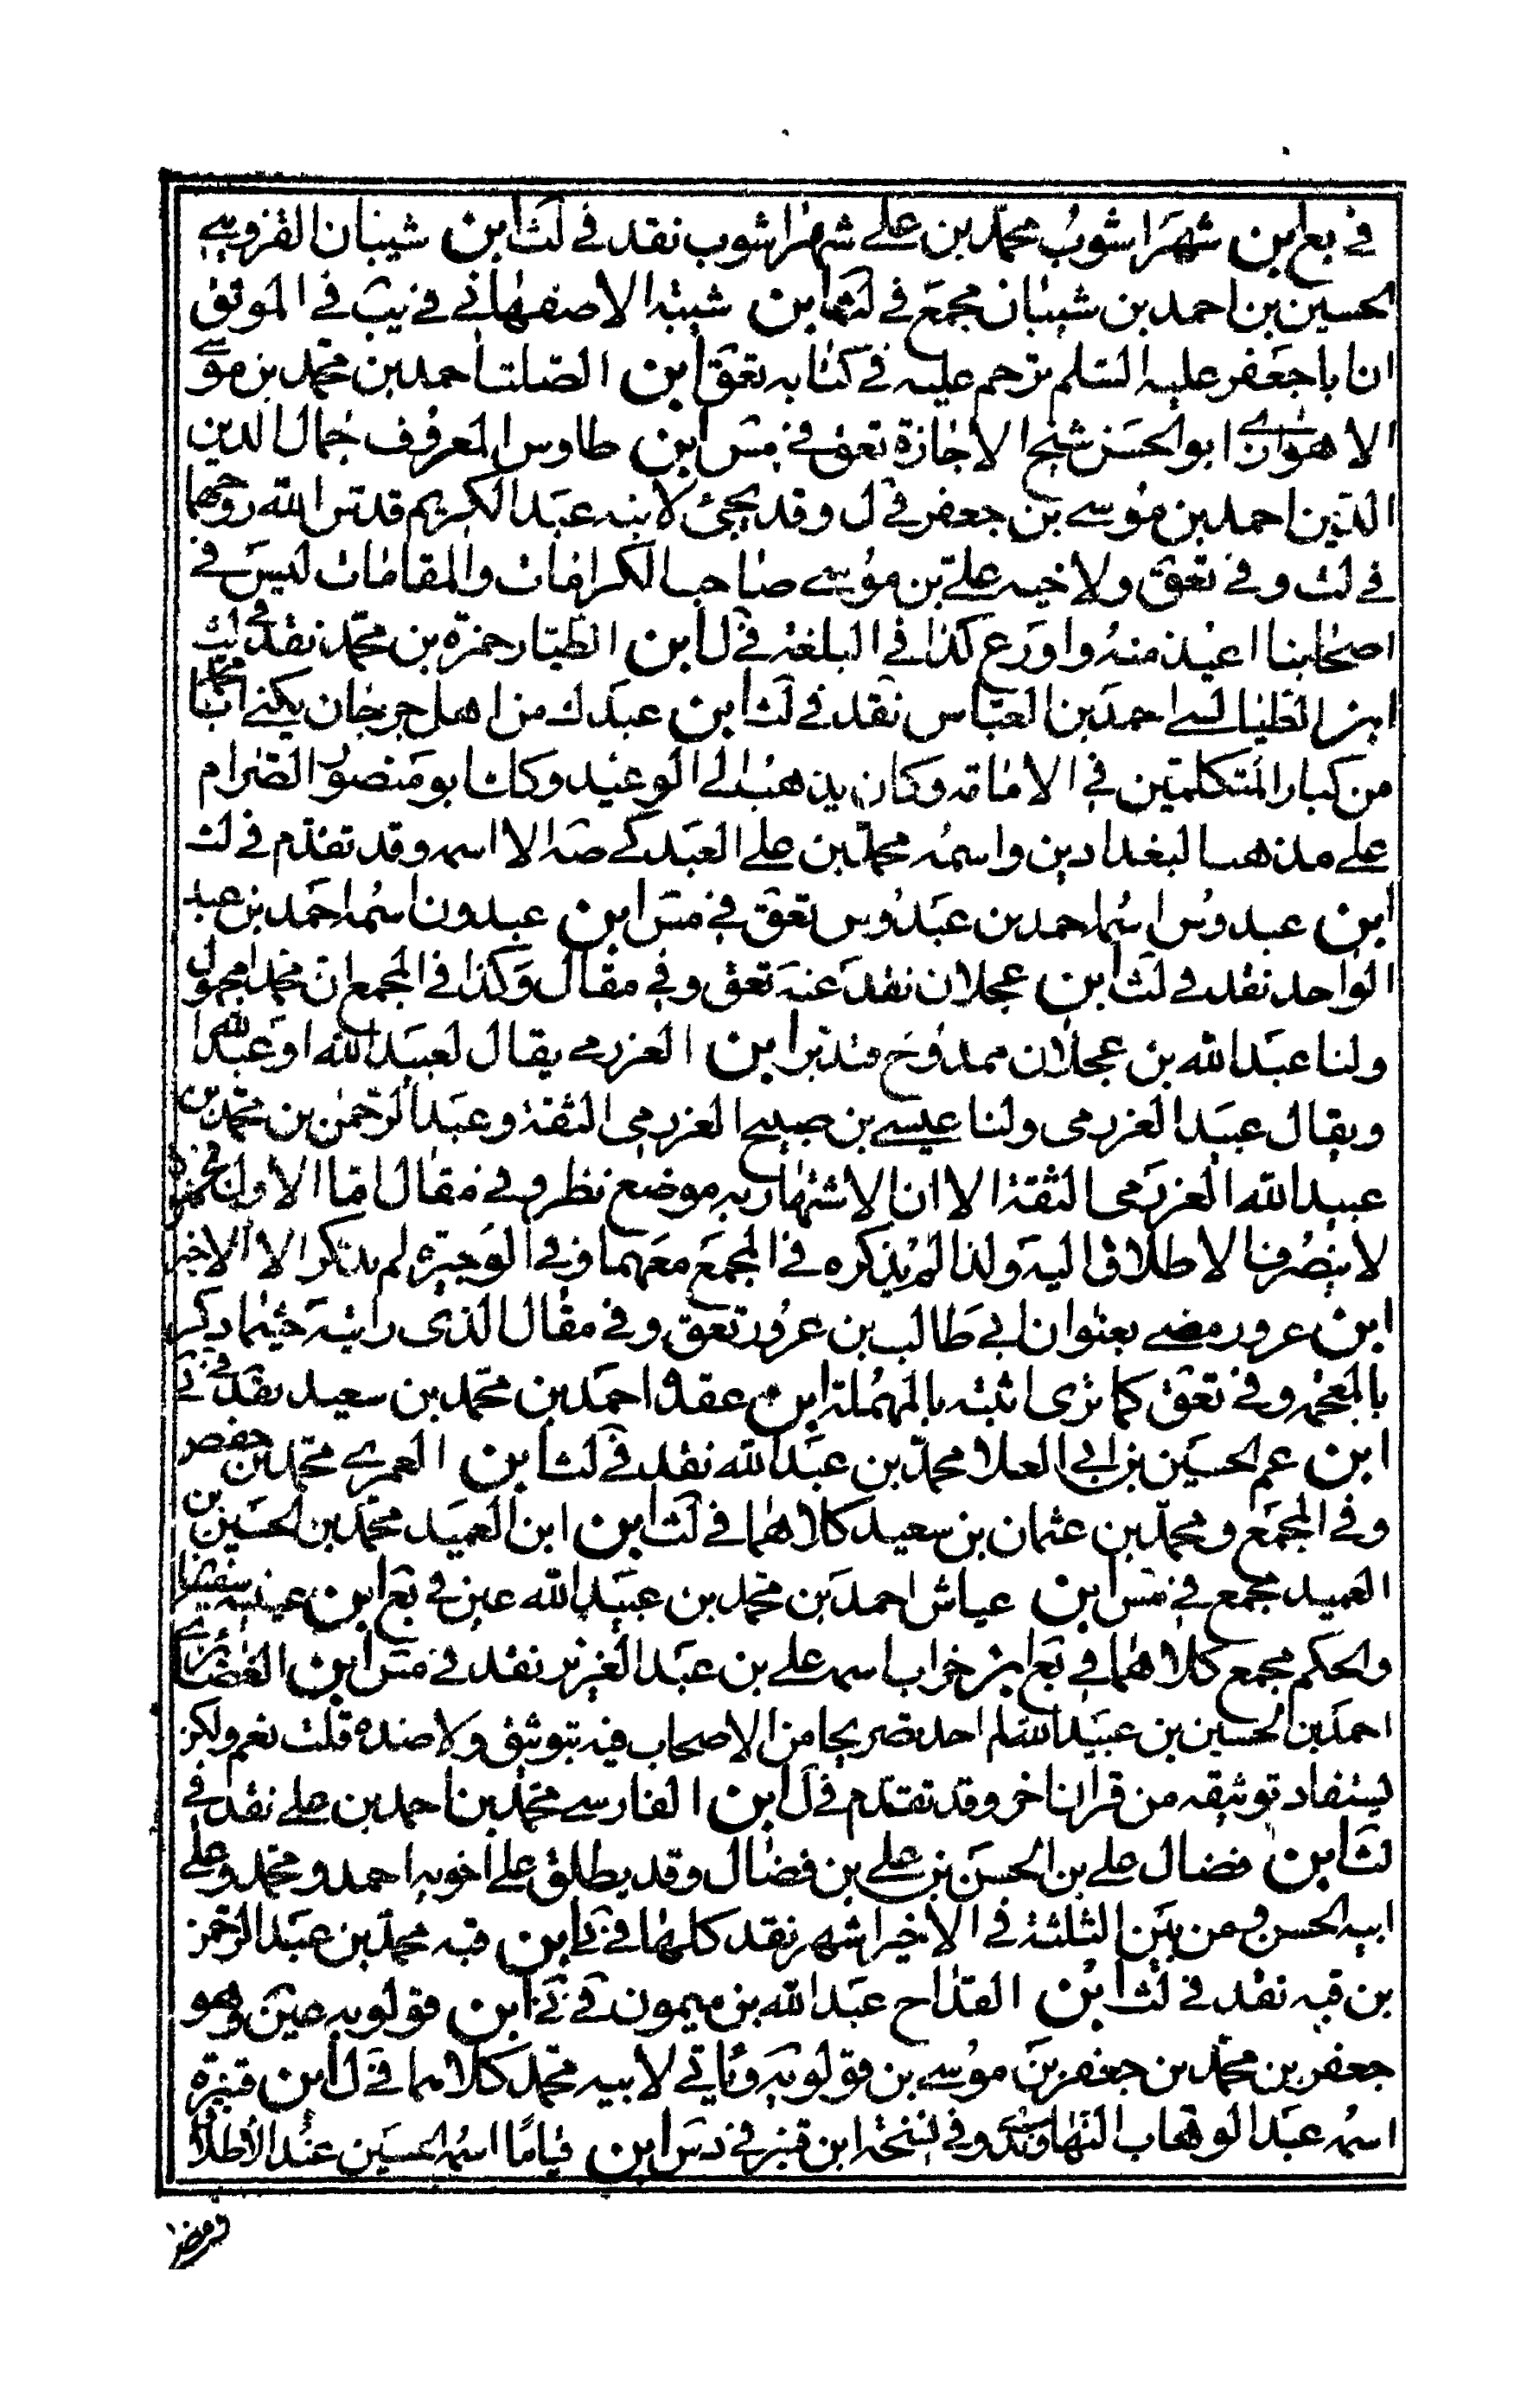 في بع ابن شهراشوب محمد بن علي شهراشوب نقد في لث ابن شيبان القزويني
الحسين بن احمد بن شيبان مجمع في لث ابن شيبة الاصفهاني في يب في الموثق
ان ابا جعفر عليه السلم ترحم عليه في كتابه تعق ابن الصلت احمد بن محمد بن موسى
الاهوازي ابو الحسن شيخ الاجازة تعق في مس ابن طاوس المعروف جمال الدين
الدين احمد بن موسى بن جعفر في ل وقد يجئ لابنه عبد الكريم قدس الله روحهما
في لث وفي تعق ولاخيه علي بن موسى صاحب الكرامات والمقامات ليس في
اصحابنا اعبد منه واورع كذا في البلغة في ل ابن الطيار حمزة بن محمد نقد في لث
ابن الطيالسي احمد بن العباس نقد في لث ابن عبدك من اهل جرجان يكنى ابا محمد
من كبار المتكلمين في الامامة وكان يذهب الى الوعيد وكان ابو منصور الصرام
على مذهب البغدادين واسمه محمد بن علي العبدكي صه الا اسمه وقد تقدم في لث
ابن عبدوس اسمه احمد بن عبدوس تعق في مس ابن عبدون اسمه احمد بن عبد
الواحد نقد في لث ابن عجلان نقد عنه تعق وفي مقال وكذا في المجمع ان محمدا مجهول
ولنا عبد الله بن عجلان ممدوح فتدبر ابن العزرمي يقال لعبيد الله او عبد الله
ويقال عبيد العزرمي ولنا عيسى بن صبيح العزرمي الثقة وعبد الرحمن بن محمد بن
عبيد الله العزرمي الثقة الا ان الاشتهار به موضع نظر وفي مقال اما الاول
لا ينصرف الاطلاق اليه ولذا لم يذكره في المجمع معهما وفي الوجيزة لم يذكر الا الاخير
ابن عرور مضى بعنوان ابي طالب بن عرور تعق وفي مقال الذي رايته حيثما ذكر
بالمعجمه وفي تعق كما ترى اثبته بالمهملة ابن عقدة احمد بن محمد بن سعيد نقد في كي
ابن عم الحسين بن ابي العلا محمد بن عبد الله نقد في لث ابن العمري محمد بن حفص
وفي المجمع ومحمد بن عثمان بن سعيد كلاهما في لث ابن ابن العميد محمد بن الحسين بن
العميد مجمع في مس ابن عياش احمد بن محمد بن عبيد الله عين في بع ابن عيينه سفين
والحكم مجمع كلاهما في بع ابن خراب اسمه علي بن عبد العزيز نقد في مس ابن الغضائري
احمد بن الحسين بن عبيد الله لم احد تصريحا من الاصحاب فيه بتوثيق ولا ضده قلت نعم ولكن
يستفاد توثيقه من قراين اخر وقد تقدم في ل ابن الفارسي محمد بن احمد بن علي نقد في
لث ابن فضال علي بن الحسن بن علي بن فضال وقد يطلق على اخويه احمد ومحمد وعلى
ابيه الحسن ومن بين الثلثة في الاخير اشهر نقد كلها في كي ابن قبه محمد بن عبد الرحمن
بن قبه نقد في لث ابن القداح عبد الله بن ميمون في كي ابن قولويه عين وهو
جعفر بن محمد بن جعفر بن موسى بن قولويه وياتي لابيه محمد كلاهما في ل ابن قنبرة
اسمه عبد الوهاب النهاوندي وفي نسخة ابن قنبر في دس ابن قياما اسمه الحسين عند الاطلاق